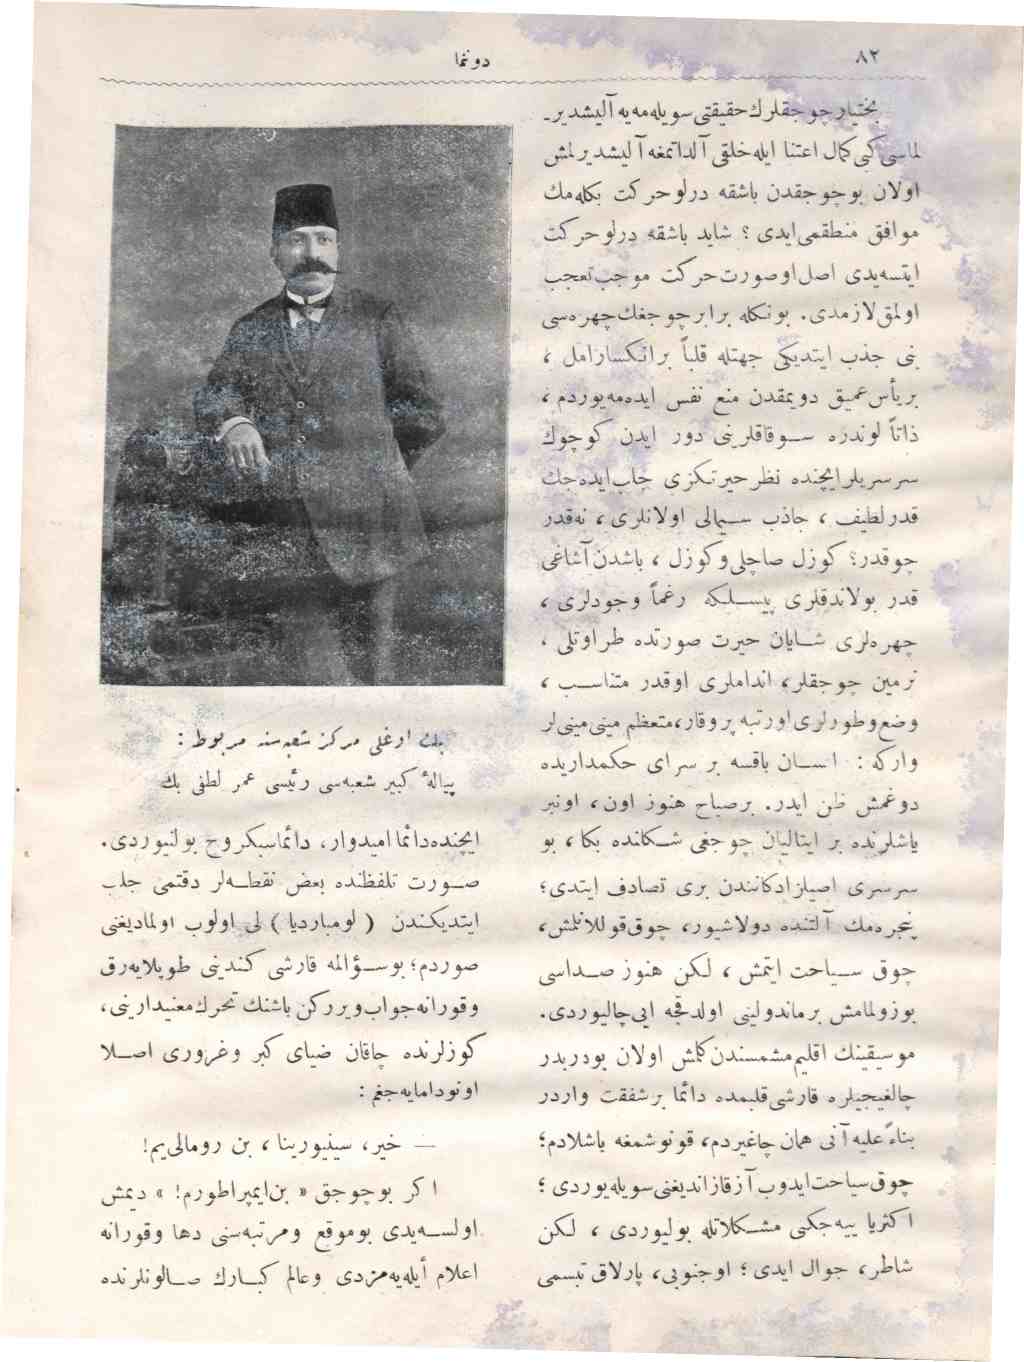 ٨٢
دوننما
بختيار چوجقلرك حقيقتى سويلهمهيه آليشديرـ
لماسى كبى كمال اعتنا ايله خلقى آلداتمغه آليشديرلمش
اولان بوچوجقدن باشقه درلو حركت بكلهمك
موافق منطقمى ايدى ؟ شايد باشقه درلو حركت
ايتسهيدى اصل اوصورت حركت موجب تعجب
اولمق لازمدى. بونكله برابر چوجغك چهرهسى
بنى جذب ايتديكى جهتله قلباً بر انكسار امل ،
بريأس عميق دويمقدن منع نفس ايدهمهيوردم ،
ذاتاً لوندره ســوقاقلرينى دور ايدن كوچوك
سرسريلر ايچنده نظر حيرتكزى جلب ايدهجك
قدر لطيف ، جاذب سـيمالى اولانلرى ، نهقدر
چوقدر؟ كوزل صاچلى وكوزل ، باشدن آشاغى
قدر بولاندقلرى پيســلكه رغماً وجودلرى ،
چهرهلرى شـايان حيرت صورتده طراوتلى ،
نرمين چوجقلر، انداملرى اوقدر متناسـب ،
وضع وطورلرى اورتبه پروقار، متعظم مينى مينى لر
واركه : انسـان باقسه بر سراى حكمداريده
دوغمش ظن ايدر. برصباح هنوز اون ، اونبر
ياشلرنده بر ايتاليان چوجغى شـكلنده بكا ، بو
سرسرى اصيلزادكانندن برى تصادف ايتدى؛
پنجرهمك آلتنده دولاشيور، چوق قوللانلمش،
چوق سـياحت ايتمش ، لكن هنوز صـداسى
بوزولمامش برماندولينى اولدقجه ايى چاليوردى.
موسيقينك اقليم مشمسندن كلمش اولان بودربدر
چالغيجيلره قارشى قلبمده دائما برشفقت واردر
بناءً عليه آنى همان چاغيردم، قونوشمغه باشلادم؛
چوق سياحت ايدوب آز قازانديغنى سويلهيوردى ؛
اكثريا ييهجكى مشـكلاتله بوليوردى ، لكن
شاطر ، جوال ايدى ؛ اوجنوبى، پارلاق تبسمى
بك اوغلى مركز شعبهسنه مربوط :
پيالهٔ كبير شعبهسى رئيسى عمر لطفى بك
ايچنده دائما اميدوار، دائما سبكروح بولنيوردى.
صـورت تلفظنده بعض نقطـهلر دقتمى جلب
ايتديكندن ( لومبارديا ) لى اولوب اولماديغنى
صوردم؛ بوسـؤالمه قارشى كندينى طوپلايهرق
وقورانه جواب ويرركن باشنك تحرك معنيدارينى،
كوزلرنده چاقان ضياى كبر وغرورى اصـلا
اونوداماىهجغم :
— خير، سينيورينا ، بن رومالى يم!
اكر بوچوجق « بن ايمپراطورم! » ديمش
اولسـهيدى بوموقع ومرتبهسنى دها وقورانه
اعلام أيلهيهمزدى وعالم كبـارك صـالونلرنده